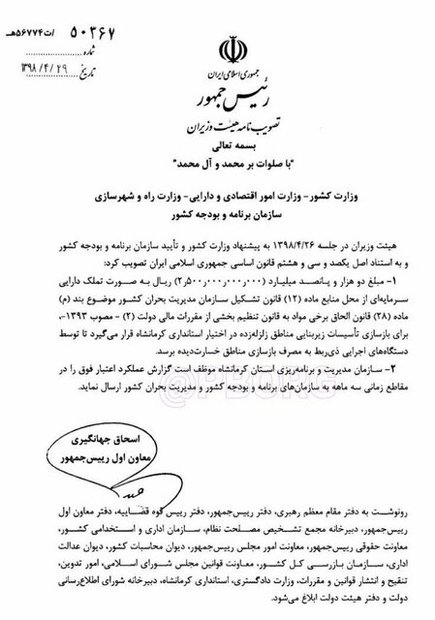 ۵۰۳۶۷ /ت۵۶۷۷۴هـ
شماره
تاریخ ۱۳۹۸/۴/۲۹
جمهوری اسلامی ایران
رئیس جمهور
تصویب نامه هیئت وزیران
بسمه تعالی
"با صلوات بر محمد و آل محمد"
وزارت کشور - وزارت امور اقتصادی و دارایی - وزارت راه و شهرسازی
سازمان برنامه و بودجه کشور
هیئت وزیران در جلسه ۱۳۹۸/۴/۲۶ به پیشنهاد وزارت کشور و تأیید سازمان برنامه و بودجه کشور
و به استناد اصل یکصد و سی و هشتم قانون اساسی جمهوری اسلامی ایران تصویب کرد:
۱- مبلغ دو هزار و پانصد میلیارد (۲,۵۰۰,۰۰۰,۰۰۰,۰۰۰) ریال به صورت تملک دارایی
سرمایه‌ای از محل منابع ماده (۱۲) قانون تشکیل سازمان مدیریت بحران کشور موضوع بند (م)
ماده (۲۸) قانون الحاق برخی مواد به قانون تنظیم بخشی از مقررات مالی دولت (۲) - مصوب ۱۳۹۳-،
برای بازسازی تأسیسات زیربنایی مناطق زلزله‌زده در اختیار استانداری کرمانشاه قرار می‌گیرد تا توسط
دستگاه‌های اجرایی ذی‌ربط به مصرف بازسازی مناطق خسارت‌دیده برسد.
۲- سازمان مدیریت و برنامه‌ریزی استان کرمانشاه موظف است گزارش عملکرد اعتبار فوق را در
مقاطع زمانی سه ماهه به سازمان‌های برنامه و بودجه کشور و مدیریت بحران کشور ارسال نماید.
اسحاق جهانگیری
معاون اول رییس‌جمهور
رونوشت به دفتر مقام معظم رهبری، دفتر رییس‌جمهور، دفتر رییس قوه قضاییه، دفتر معاون اول
رییس‌جمهور، دبیرخانه مجمع تشخیص مصلحت نظام، سازمان اداری و استخدامی کشور،
معاونت حقوقی رییس‌جمهور، معاونت امور مجلس رییس‌جمهور، دیوان محاسبات کشور، دیوان عدالت
اداری، سازمان بازرسی کل کشور، معاونت قوانین مجلس شورای اسلامی، امور تدوین،
تنقیح و انتشار قوانین و مقررات، وزارت دادگستری، استانداری کرمانشاه، دبیرخانه شورای اطلاع‌رسانی
دولت و دفتر هیئت دولت ابلاغ می‌شود.